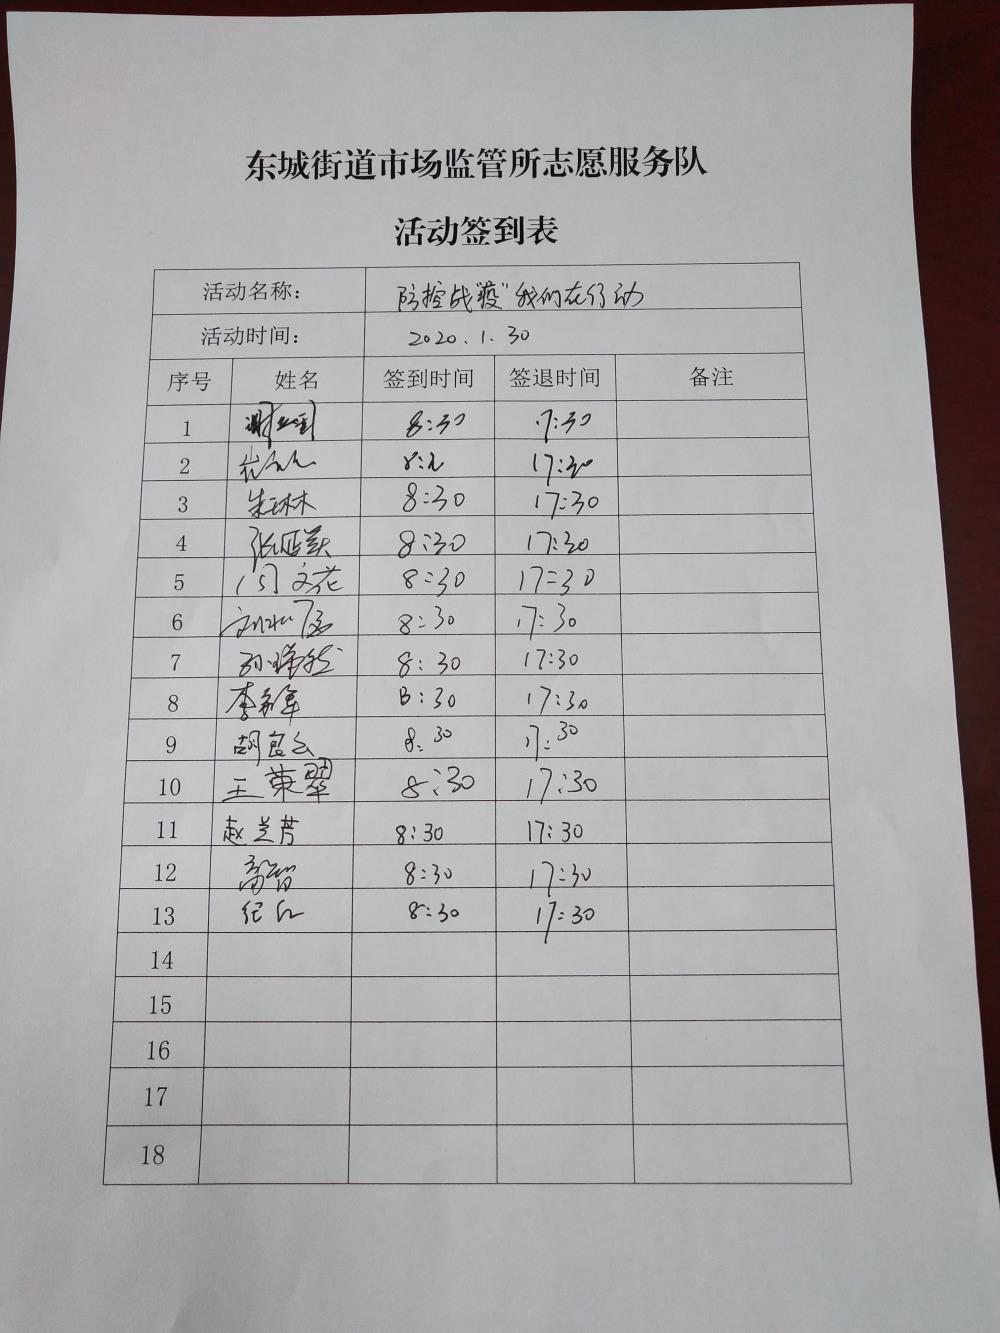 东城街道市场监管所志愿服务队
活动签到表
活动名称： 防控战"疫"我们在行动
活动时间： 2020.1.30
序号 姓名 签到时间 签退时间 备注
1 8:30 17:30
2 17:30
3 朱琳琳 8:30 17:30
4 张延美 8:30 17:30
5 门文花 8:30 17:30
6 8:30 17:30
7 孙瑞然 8:30 17:30
8 李 8:30 17:30
9 胡 8:30 17:30
10 王荣翠 8:30 17:30
11 赵兰芳 8:30 17:30
12 高智 8:30 17:30
13 纪红 8:30 17:30
14
15
16
17
18